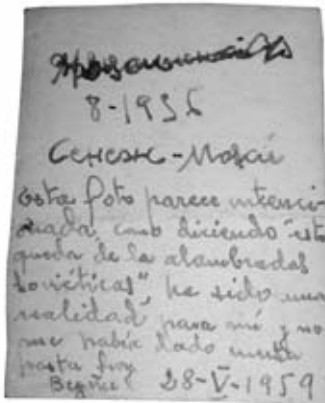 8-1956
Ceneste-Moscú
esta foto parece intenci-
onada, como diciendo "esto
queda de la alambradas
sovieticas" ha sido una
realidad para mí y no
me había dado cuenta
hasta hoy
28-V-1959